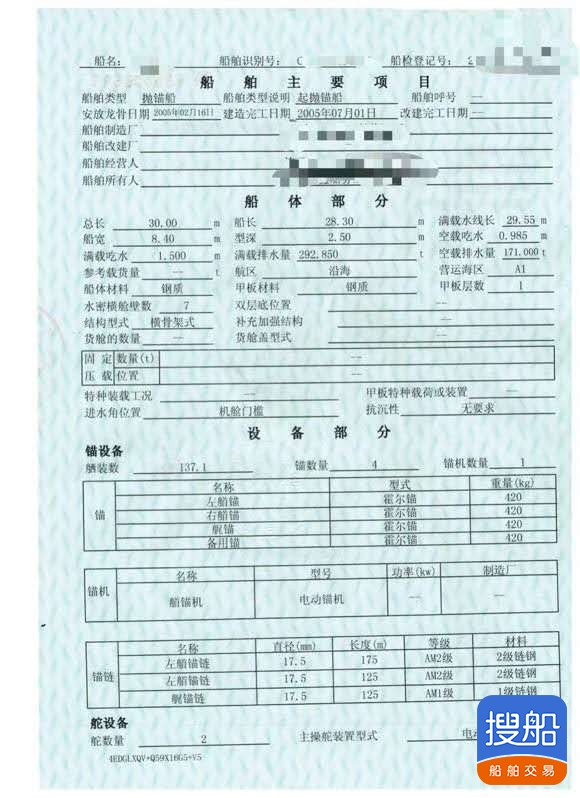 船名：船舶识别号：C 船检登记号：2
船舶主要项目
船舶类型 抛锚船 船舶类型说明 起抛锚船 船舶呼号 --
安放龙骨日期 2005年02月16日 建造完工日期 2005年07月01日 改建完工日期 --
船舶制造厂
船舶改建厂
船舶经营人
船舶所有人
船体部分
总长 30.00 m 船长 28.30 m 满载水线长 29.55 m
船宽 8.40 m 型深 2.50 m 空载吃水 0.985 m
满载吃水 1.500 m 满载排水量 292.850 t 空载排水量 171.000 t
参考载货量 -- t 航区 沿海 营运海区 A1
船体材料 钢质 甲板材料 钢质 甲板层数 1
水密横舱壁数 7 双层底位置 --
结构型式 横骨架式 补充加强结构 --
货舱的数量 -- 货舱盖型式 --
固定 数量(t) --
压载 位置 --
特种装载工况 -- 甲板特种载荷或装置 --
进水角位置 机舱门槛 抗沉性 无要求
设备部分
锚设备
舾装数 137.1 锚数量 4 锚机数量 1
锚 名称 型式 重量(kg)
左艏锚 霍尔锚 420
右艏锚 霍尔锚 420
艉锚 霍尔锚 420
备用锚 霍尔锚 420
锚机 名称 型号 功率(kw) 制造厂
艏锚机 电动锚机 -- --
锚链 名称 直径(mm) 长度(m) 等级 材料
左艏锚链 17.5 175 AM2级 2级链钢
左艏锚链 17.5 125 AM2级 2级链钢
艉锚链 17.5 125 AM1级 1级链钢
舵设备
舵数量 2 主操舵装置型式 电
4EDGLXQV+Q59X16G5+V5
搜船
船舶交易